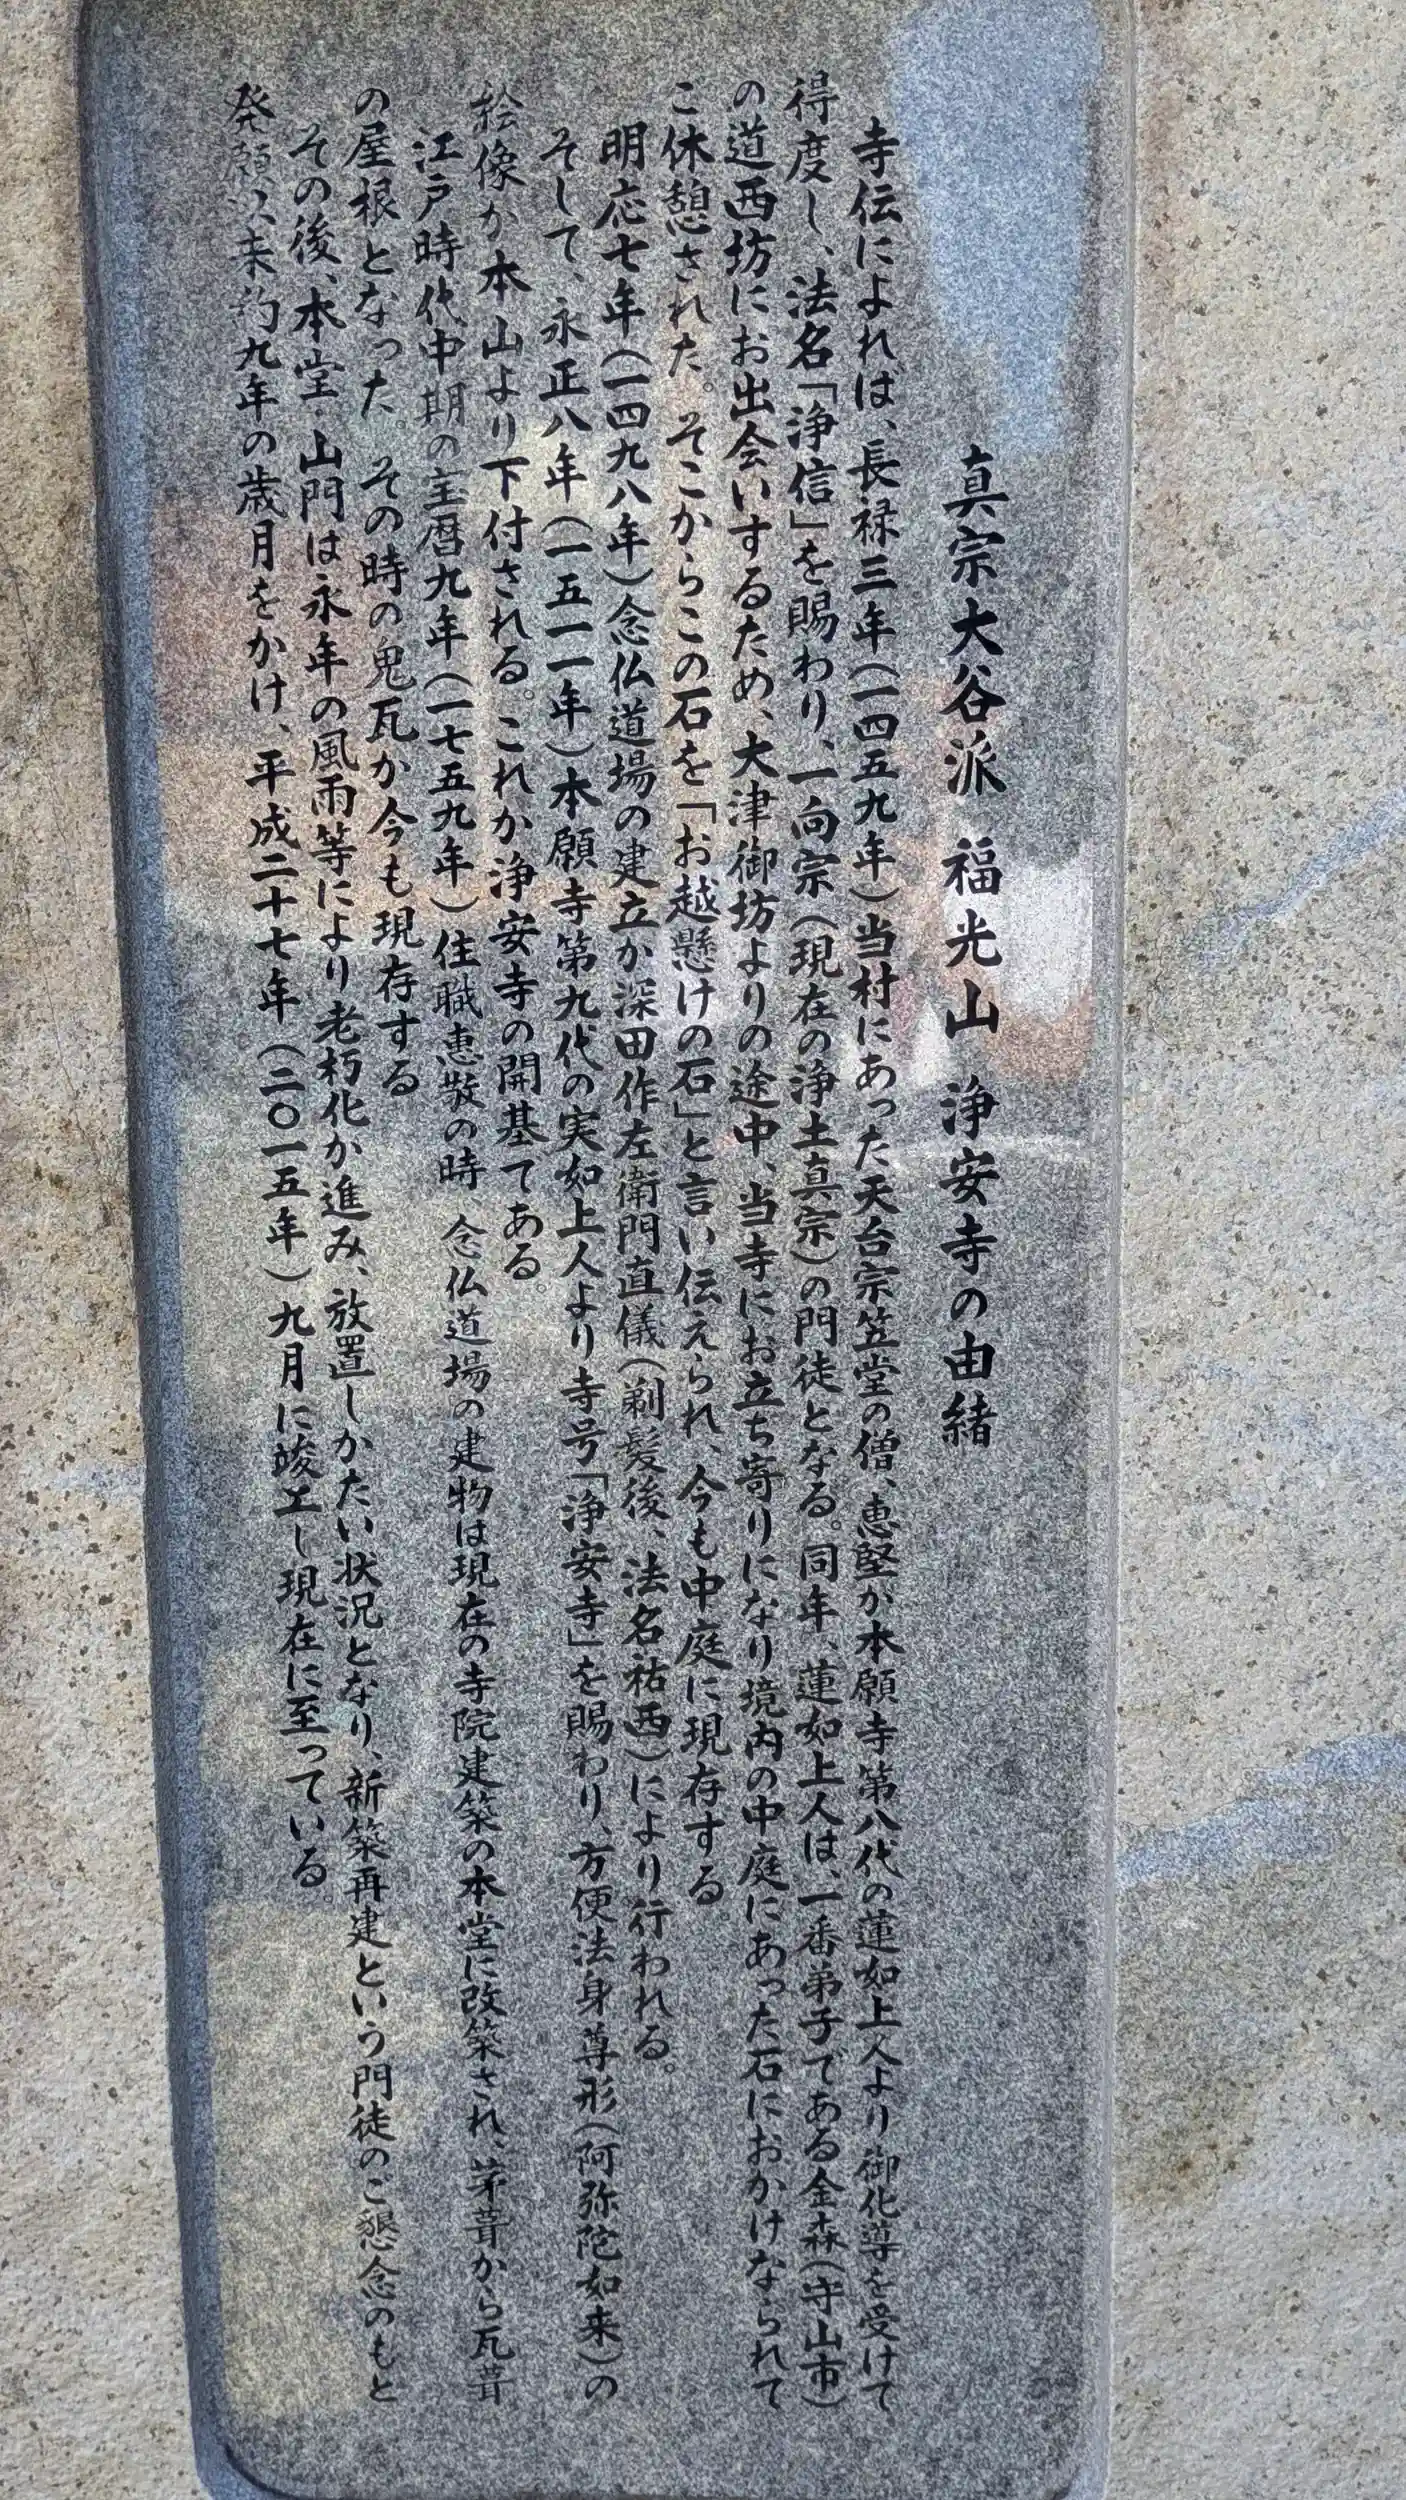 真宗大谷派 福光山 浄安寺の由緒
寺伝によれば、長禄三年(一四五九年)当村にあった天台宗笠堂の僧、恵堅が本願寺第八代の蓮如上人より御化導を受けて
得度し、法名「浄信」を賜わり、一向宗(現在の浄土真宗)の門徒となる。同年、蓮如上人は、一番弟子である金森(守山市)
の道西坊にお出会いするため、大津御坊よりの途中、当寺にお立ち寄りになり境内の中庭にあった石におかけなられて
ご休憩された。そこからこの石を「お越懸けの石」と言い伝えられ、今も中庭に現存する。
明応七年(一四九八年)念仏道場の建立か深田作左衛門直儀(剃髪後、法名祐西)により行われる。
そして、永正八年(一五一一年)本願寺第九代の実如上人より寺号「浄安寺」を賜わり、方便法身尊形(阿弥陀如来)の
絵像か本山より下付される。これか浄安寺の開基てある。
江戸時代中期の宝暦九年(一七五九年)住職恵敬の時、念仏道場の建物は現在の寺院建築の本堂に改築され、茅葺から瓦葺
の屋根となった。その時の鬼瓦か今も現存する
その後、本堂・山門は永年の風雨等により老朽化か進み、放置しかたい状況となり、新築再建という門徒のご懇念のもと
発願以来約九年の歳月をかけ、平成二十七年(二〇一五年)九月に竣工し現在に至っている。